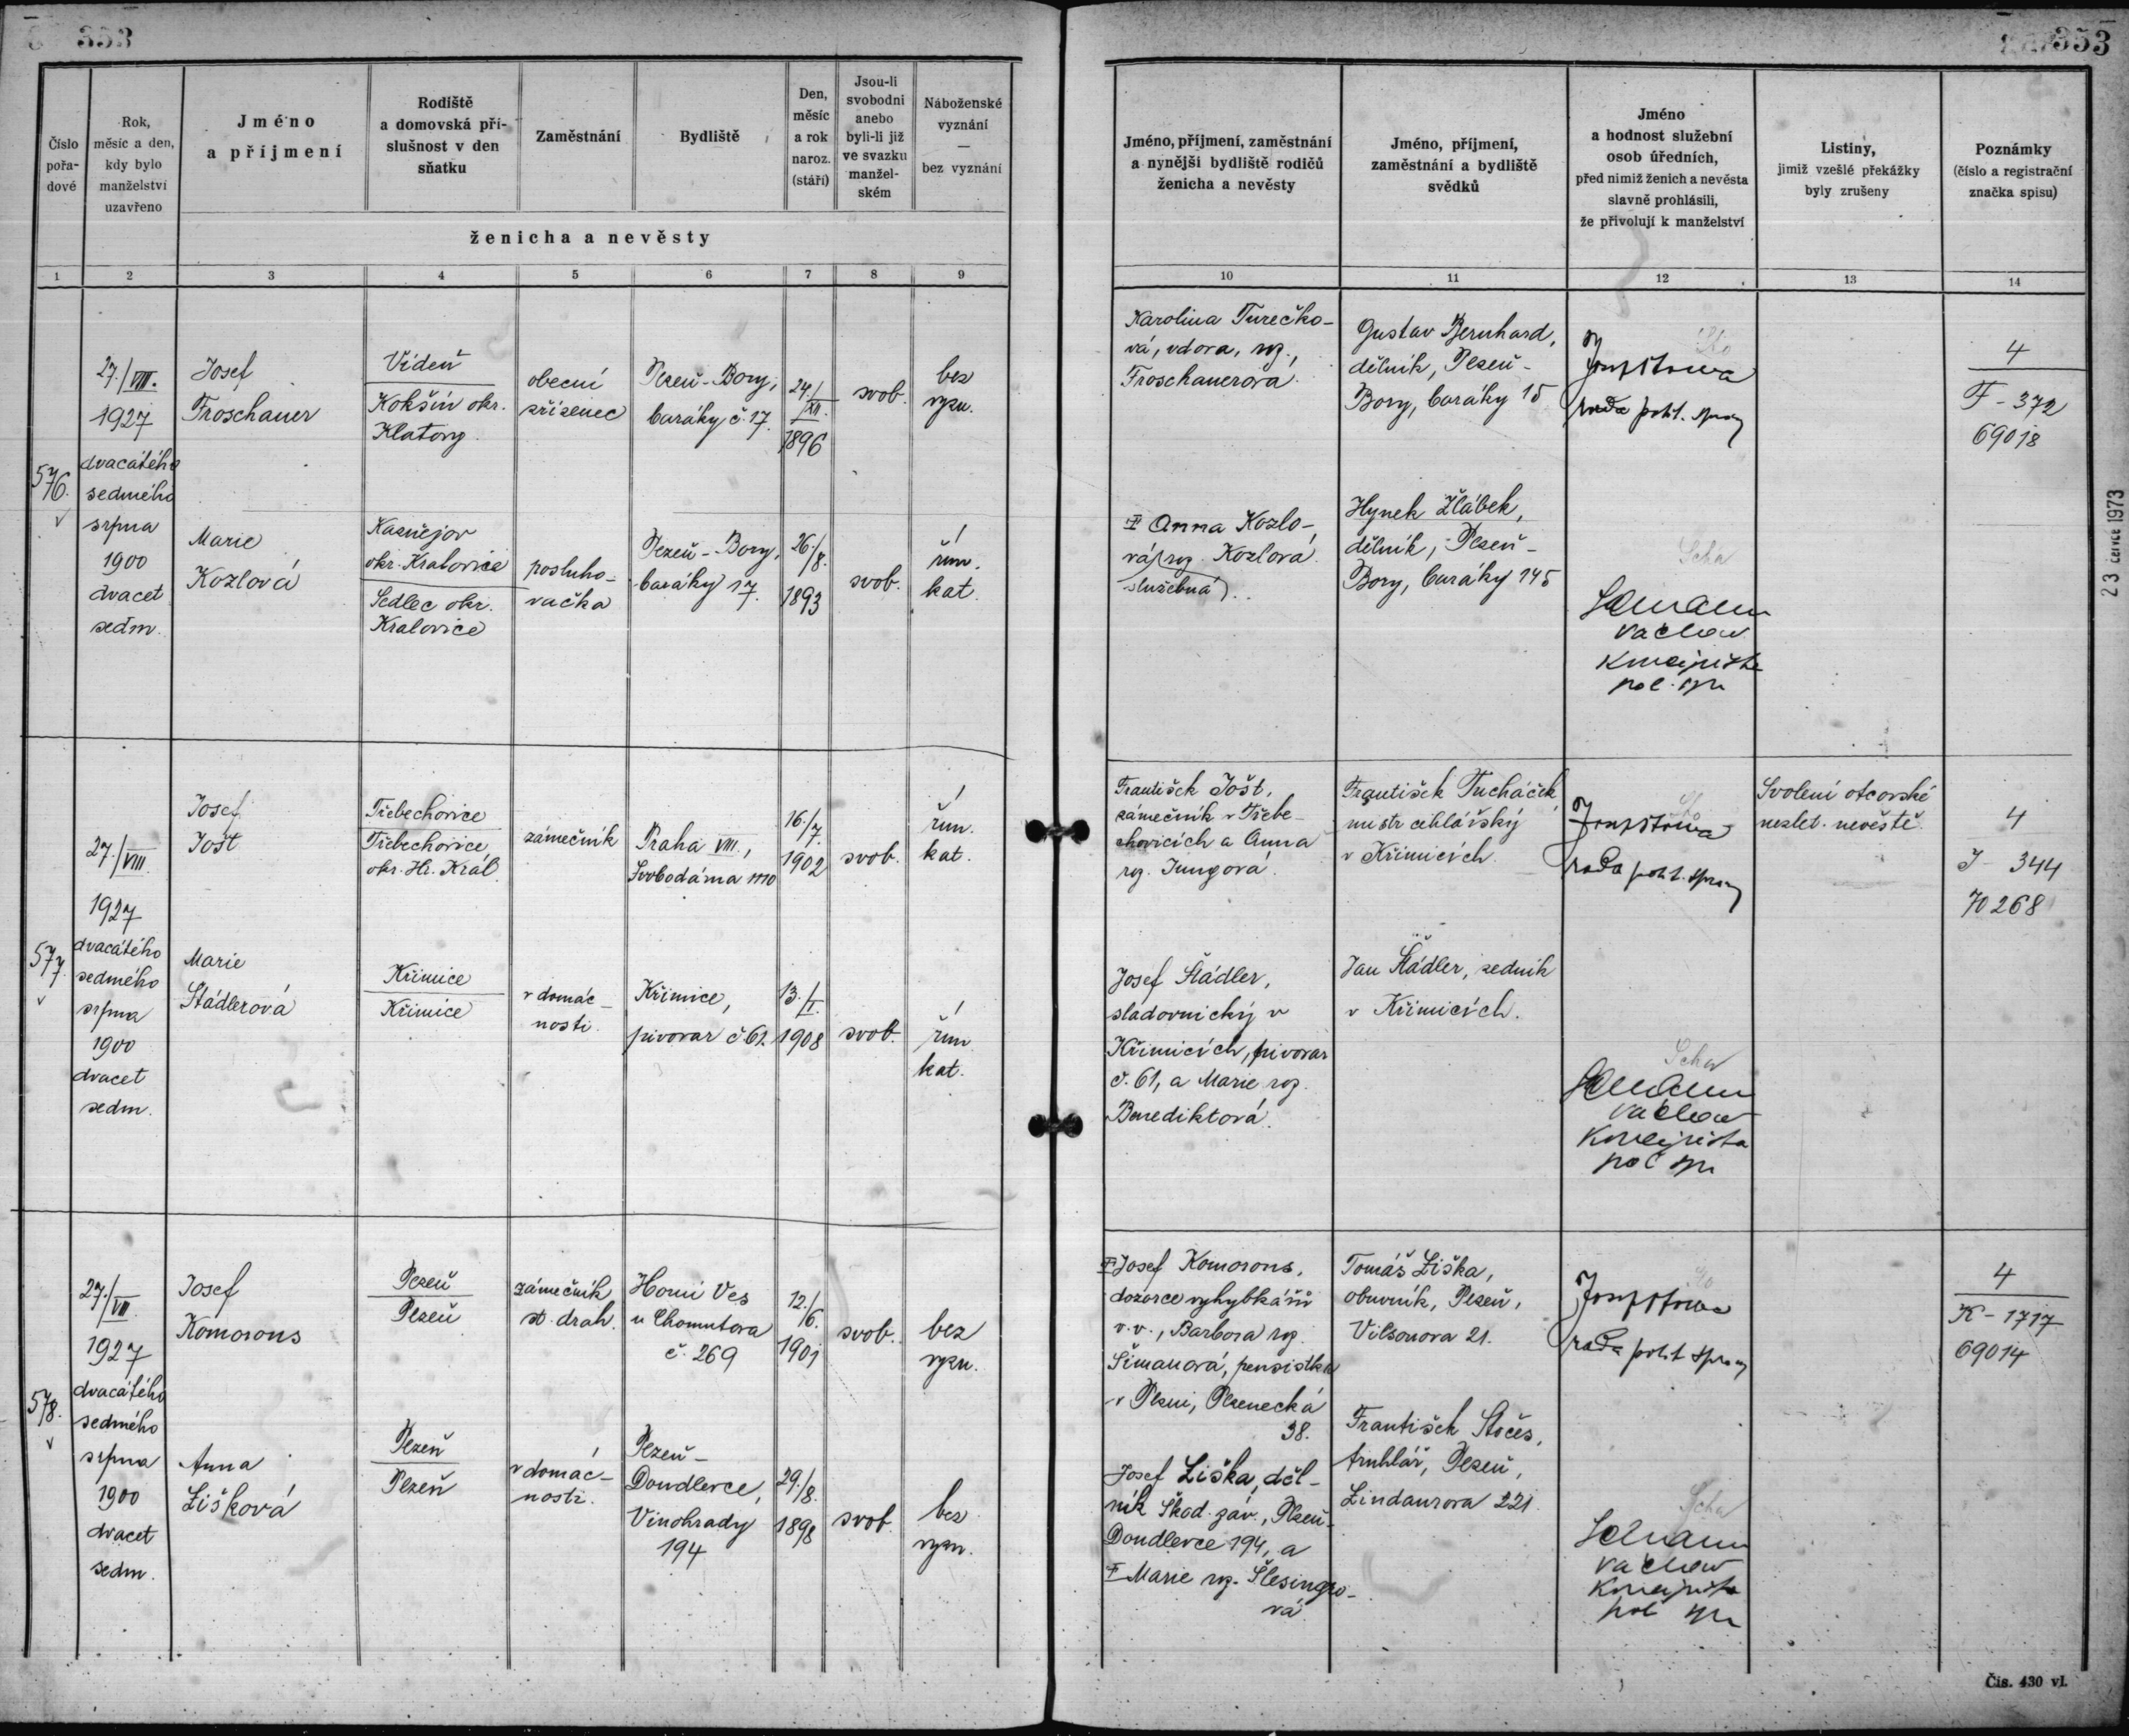 353
353
Číslo
pořa-
dové
Rok,
měsíc a den,
kdy bylo
manželství
uzavřeno
Jméno
a příjmení
Rodiště
a domovská pří-
slušnost v den
sňatku
Zaměstnání
Bydliště
Den,
měsíc
a rok
naroz.
(stáří)
Jsou-li
svobodni
anebo
byli-li již
ve svazku
manžel-
ském
Náboženské
vyznání
—
bez vyznání
ženicha a nevěsty
Jméno, příjmení, zaměstnání
a nynější bydliště rodičů
ženicha a nevěsty
Jméno, příjmení,
zaměstnání a bydliště
svědků
Jméno
a hodnost služební
osob úředních,
před nimiž ženich a nevěsta
slavně prohlásili,
že přivolují k manželství
Listiny,
jimiž vzešlé překážky
byly zrušeny
Poznámky
(číslo a registrační
značka spisu)
1 2 3 4 5 6 7 8 9 10 11 12 13 14
576.
27./VIII.
1927
dvacátého
sedmého
srpna
1900
dvacet
sedm.
Josef
Froschauer
Vídeň
Kokšín okr.
Klatovy.
obecní
zřízenec
Plzeň-Bory,
baráky č. 17.
24./
XII.
1896
svob.
bez
vyzn.
Karolina Turečko-
vá, vdova, roz.,
Froschauerová.
Gustav Bernhard,
dělník, Plzeň-
Bory, baráky 15
rada polit. správy
4
F - 372
69018
Marie
Kozlová
Kaznějov
okr. Kralovice
Sedlec okr.
Kralovice
posluho-
vačka
Plzeň-Bory,
baráky 17.
26./
8.
1893
svob.
řím.
kat.
Anna Kozlo-
vá, roz. Kozlová
služebná).
Hynek Žlábek,
dělník, Plzeň-
Bory, baráky 145
Scha
577.
27./VIII.
1927
dvacátého
sedmého
srpna
1900
dvacet
sedm.
Josef
Jošt
Třebechovice
Třebechovice
okr. Hr. Král.
zámečník
Praha VIII.,
Svobodárna 1110
16./
7.
1902
svob.
řím.
kat.
František Jošt,
zámečník v Třebe-
chovicích a Anna
roz. Jungová.
František Tucháček
mistr cihlářský
v Křimicích.
rada polit. správy
Svolení otcovské
nezlet. nevěstě.
4
J - 344
70268
Marie
Štádlerová
Křimice
Křimice
v domác-
nosti.
Křimice,
pivovar č. 61.
13./
I.
1908
svob.
řím.
kat.
Josef Štádler,
sladovnický v
Křimicích, pivovar
č. 61, a Marie roz.
Benediktová.
Jan Štádler, sedník
v Křimicích.
Scha
578.
27./VIII.
1927
dvacátého
sedmého
srpna
1900
dvacet
sedm.
Josef
Komorous
Plzeň
Plzeň
zámečník
st. drah.
Horní Ves
u Chomutova
č. 269
12./
6.
1901
svob.
bez
vyzn.
Josef Komorous,
dozorce vyhybkářů
v.v., Barbora roz.
Šimanová, pensistka
v Plzni, Plzenecká
38.
Tomáš Liška,
obuvník, Plzeň,
Vilsonova 21.
rada polit správy
4
K - 1717
69014
Anna
Lišková
Plzeň
Plzeň
v domác-
nosti.
Plzeň-
Doudlevce,
Vinohrady
194
29./
8.
1898
svob.
bez
vyzn.
Josef Liška, děl-
ník Škod. záv., Plzeň-
Doudlevce 194, a
Marie roz. Šlesingro-
vá
František Stočes,
truhlář, Plzeň,
Lindaurova 221.
Scha
23 července 1973
Čís. 430 vl.